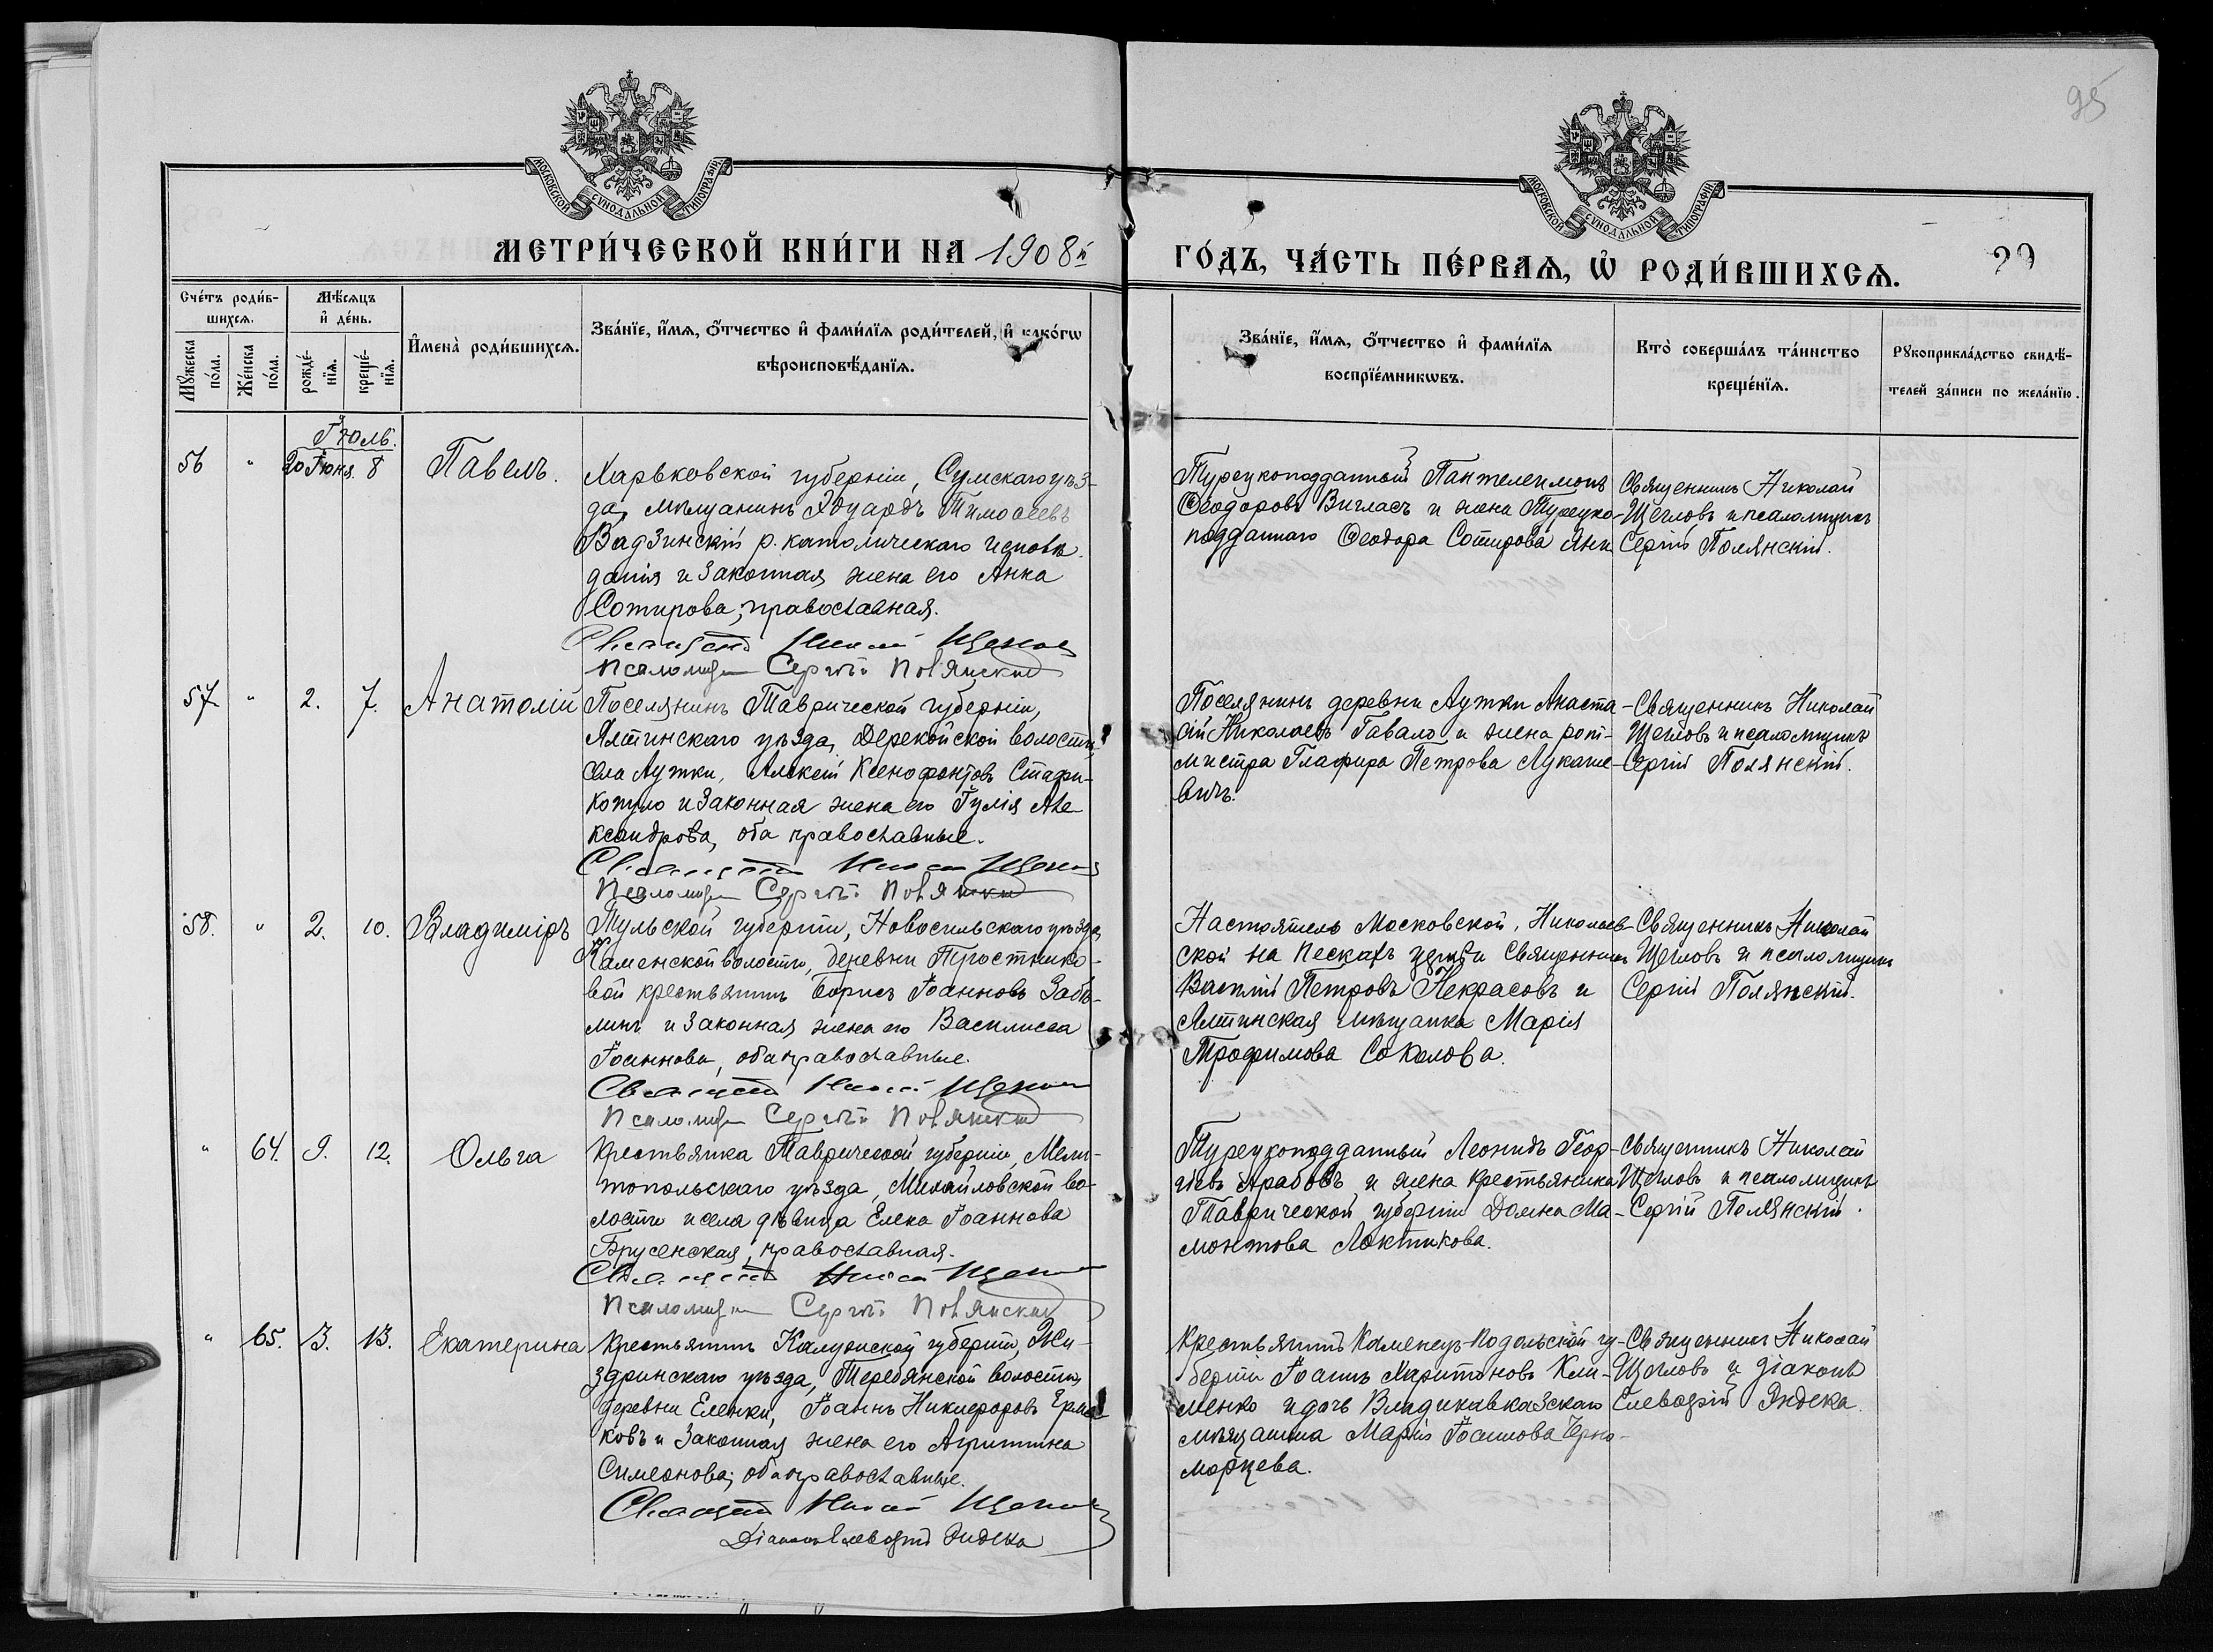 95
МОСКОВСКОЙ СѴНОДАЛЬНОЙ ТИПОГРАФІИ
МОСКОВСКОЙ СѴНОДАЛЬНОЙ ТИПОГРАФІИ
МЕТРИ́ЧЕСКОЙ КНИ́ГИ НА 1908й
ГО́ДЪ, ЧА́СТЬ ПЕ́РВАѦ, Ѡ҆ РОДИ́ВШИХСѦ.
29
Сче́тъ роди́в-
шихсѧ.
Мѣ́сѧцъ
и҆ де́нь.
Мꙋ́жеска
по́ла.
Же́нска
по́ла.
рожде́-
нїѧ.
креще́-
нїѧ.
И҆мена̀ роди́вшихсѧ.
Зва́нїе, и҆́мѧ, ѻ҆́тчество и҆ фами́лїѧ роди́телей, и҆ како́гѡ
вѣроисповѣ́данїѧ.
Зва́нїе, и҆́мѧ, ѻ҆́тчество и҆ фами́лїѧ
воспрїе́мникѡвъ.
Кто̀ соверша́лъ та́инство
креще́нїѧ.
Рꙋкоприкла́дство свидѣ́-
телей за́писи по жела́нїю.
Іюль.
56 " 20 Іюня. 8 Павелъ.
Харьковской губерніи, Сумскаго уѣз-
да, мѣщанинъ Эдуардъ Тимоѳеевъ
Вадзинскій р. католическаго исповѣ-
данія и законная жена его Анна
Сотирова, православная.
Священ Николай Щегловъ
Псаломщ Сергѣй Полянскій
Турецкоподданный Пантелеимонъ
Ѳеодоровъ Вигласъ и жена Турецко-
подданнаго Ѳеодора Сотирова Анна
Священникъ Николай
Щегловъ и псаломщикъ
Сергій Полянскій.
57 " 2. 7. Анатолій
Поселянинъ Таврической губерніи,
Ялтинскаго уѣзда, Дерекойской волости,
села Аутки, Алексѣй Ксенофонтовъ Стафи-
копуло и законная жена его Іулія Але-
ксандрова, оба православные.
Священ Николай Щегловъ
Псаломщ Сергѣй Полянскій
Поселянинъ деревни Аутки Анаста-
сій Николаевъ Гавало и жена рот-
мистра Глафира Петрова Лукаше-
вичъ.
Священникъ Николай
Щегловъ и псаломщикъ
Сергій Полянскій.
58. " 2. 10. Владиміръ
Тульской губерніи, Новосильскаго уѣзда,
Каменской волости, деревни Тростнико-
вой крестьянинъ Борисъ Іоанновъ Забѣ-
линъ и законная жена его Василисса
Іоаннова, оба православные.
Священ Николай Щегловъ
Псаломщ Сергѣй Полянскій
Настоятель Московской, Николаев-
ской на Пескахъ церкви Священникъ
Василій Петровъ Некрасовъ и
Ялтинская мѣщанка Марія
Трофимова Соколова.
Священникъ Николай
Щегловъ и псаломщикъ
Сергій Полянскій.
" 64. 9. 12. Ольга
Крестьянка Таврической губерніи, Мели-
топольскаго уѣзда, Михайловской во-
лости и села дѣвица Елена Іоаннова
Брусенская, православная.
Священ Николай Щегловъ
Псаломщ Сергѣй Полянскій
Турецкоподданный Леонидъ Геор-
гіевъ Арабовъ и жена крестьянина
Таврической губерніи Домна Ма-
монтова Локтикова.
Священникъ Николай
Щегловъ и псаломщикъ
Сергій Полянскій.
" 65. 3. 13. Екатерина
Крестьянинъ Калужской губерніи, Жи-
здринскаго уѣзда, Теребянской волости,
деревни Еленки, Іоаннъ Никифоровъ Ерма-
ковъ и законная жена его Агриппина
Симеонова, оба православные.
Священ Николай Щегловъ
Діаконъ Елевѳерій Эндека
Крестьянинъ Каменецъ-Подольской гу-
берніи Іоаннъ Харитоновъ Кли-
менко и дочь Владикавказскаго
мѣщанина Марія Іоаннова Черно-
морцева.
Священникъ Николай
Щегловъ и діаконъ
Елевѳерій Эндека.